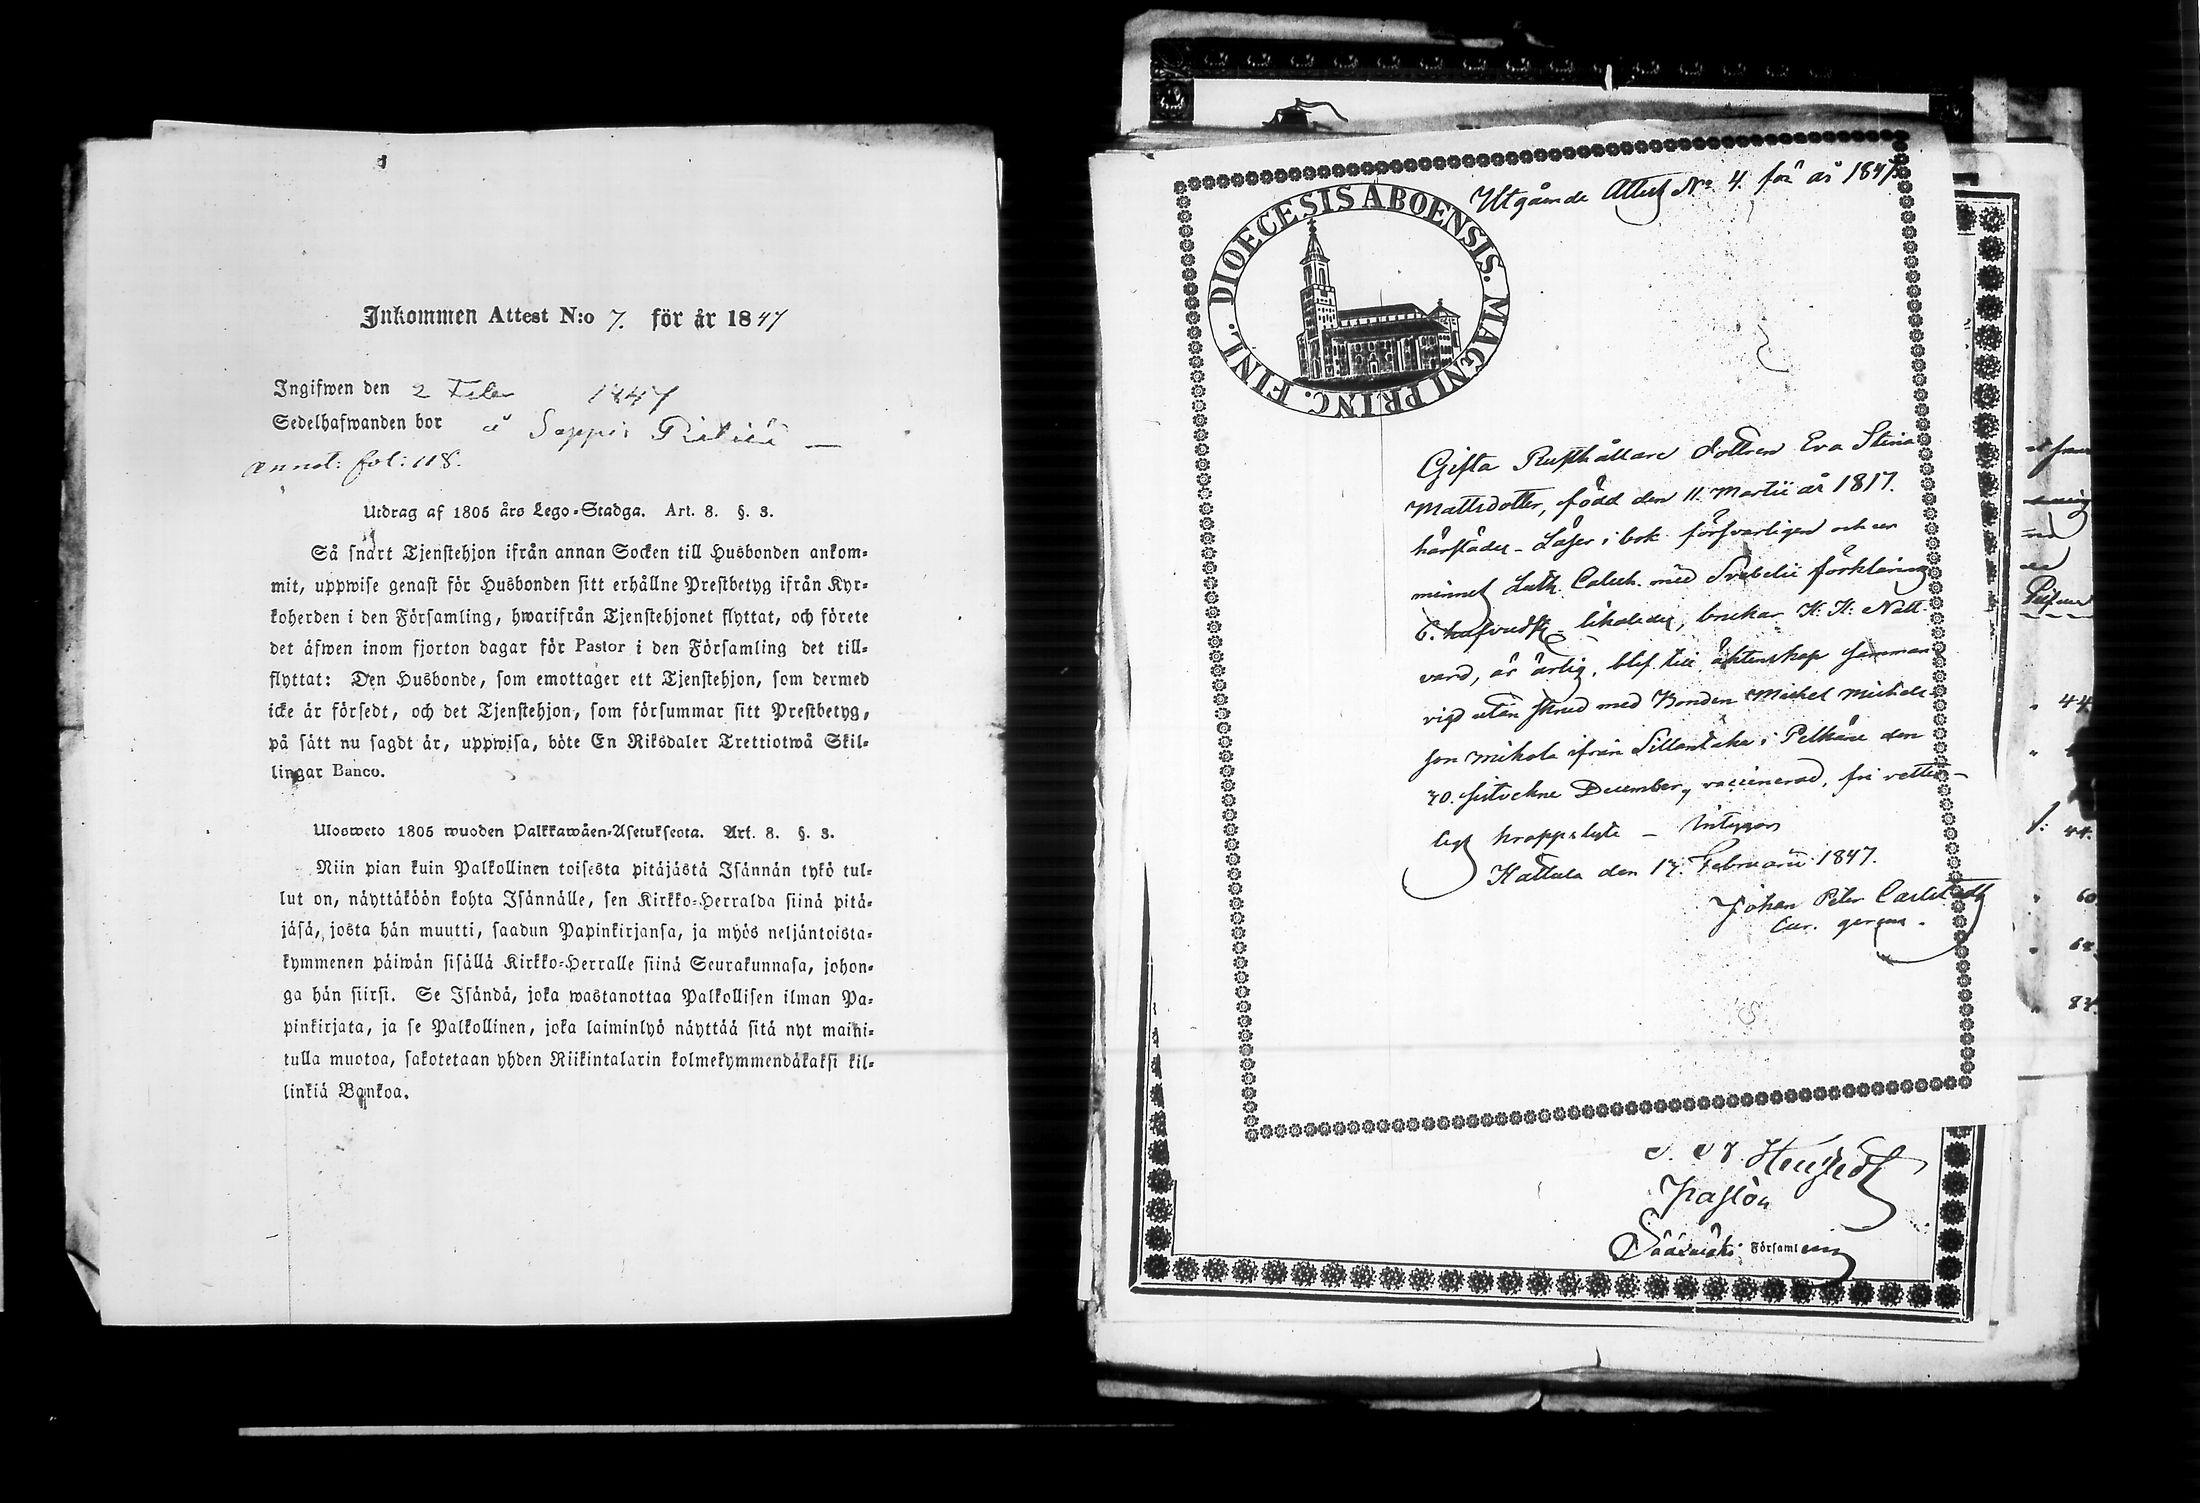 Inkommen Attest N:o 7. för år 1847
Ingifwen den 2 Febr 1847
Sedelhafwanden bor å Sappis
annot: fol: 118.
Utdrag af 1805 års Lego-Stadga. Art. 8. §. 3.
Så snart Tjenstehjon ifrån annan Socken till Husbonden ankom-
mit, uppwise genast för Husbonden sitt erhållne Prestbetyg ifrån Kyr-
koherden i den Församling, hwarifrån Tjenstehjonet flyttat, och förete
det äfwen inom fjorton dagar för Pastor i den Församling det till-
flyttat: Den Husbonde, som emottager ett Tjenstehjon, som dermed
icke är försedt, och det Tjenstehjon, som försummar sitt Prestbetyg,
på sätt nu sagdt är, uppwisa, böte En Riksdaler Trettiotwå Skil-
lingar Banco.
Ulosweto 1805 wuoden Palkkawäen-Asetuksesta. Art. 8. §. 3.
Niin pian kuin Palkollinen toisesta pitäjästä Isännän tykö tul-
lut on, näyttäköön kohta Isännälle, sen Kirkko-Herralda siinä pitä-
jäsä, josta hän muutti, saadun Papinkirjansa, ja myös neljäntoista-
kymmenen päiwän sisällä Kirkko-Herralle siinä Seurakunnasa, johon-
ga hän siirsi. Se Isändä, joka wastanottaa Palkollisen ilman Pa-
pinkirjata, ja se Palkollinen, joka laiminlyö näyttää sitä nyt maini-
tulla muotoa, sakotetaan yhden Riikintalarin kolmekymmendäkaksi kil-
linkiä Bankoa.
Utgående Attest No 4. för år 1847.
DIOECESIS ABOENSIS. MAGNI PRINC. FINL.
Gifta Rusthållare Dottren Eva Stina
Mattsdotter, född den 11 Martii år 1817.
härstädes - Läser i bok försvarligen och ur
minnet Luth. Catech. med Svebelii förklaring
likaledes, brukar H. H. Natt-
vard, är ärlig, blef till äktenskap samman-
vigd utan skrud med Bonden Michel Michels-
son Mikola ifrån Sillantaka i Pelkäne den
30. sistvekne December, vaccinerad, fri vener-
ligt kroppslyte - Intygar
Hattula den 17. Februarii 1847.
Johan Peter Carlstedt
Cur. gerens.
Pastor
Sääxmäki Församling
44
44.
60
62.